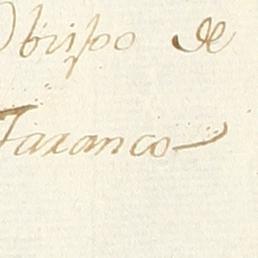 Obispo de
Taranco